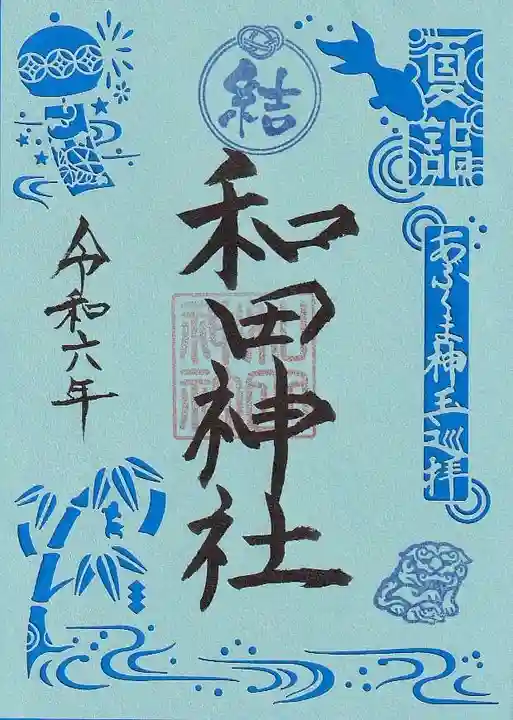 夏詣
あぶくま神玉巡拝
結
和田神社
令和六年